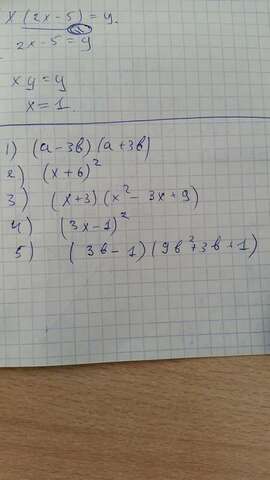 x (2x - 5) = y.
2x - 5 = y
xy = y
x = 1.
1) (a - 3b) (a + 3b)
2) (x + 6)²
3) (x + 3) (x² - 3x + 9)
4) (3x - 1)²
5) (3b - 1) (9b² + 3b + 1)